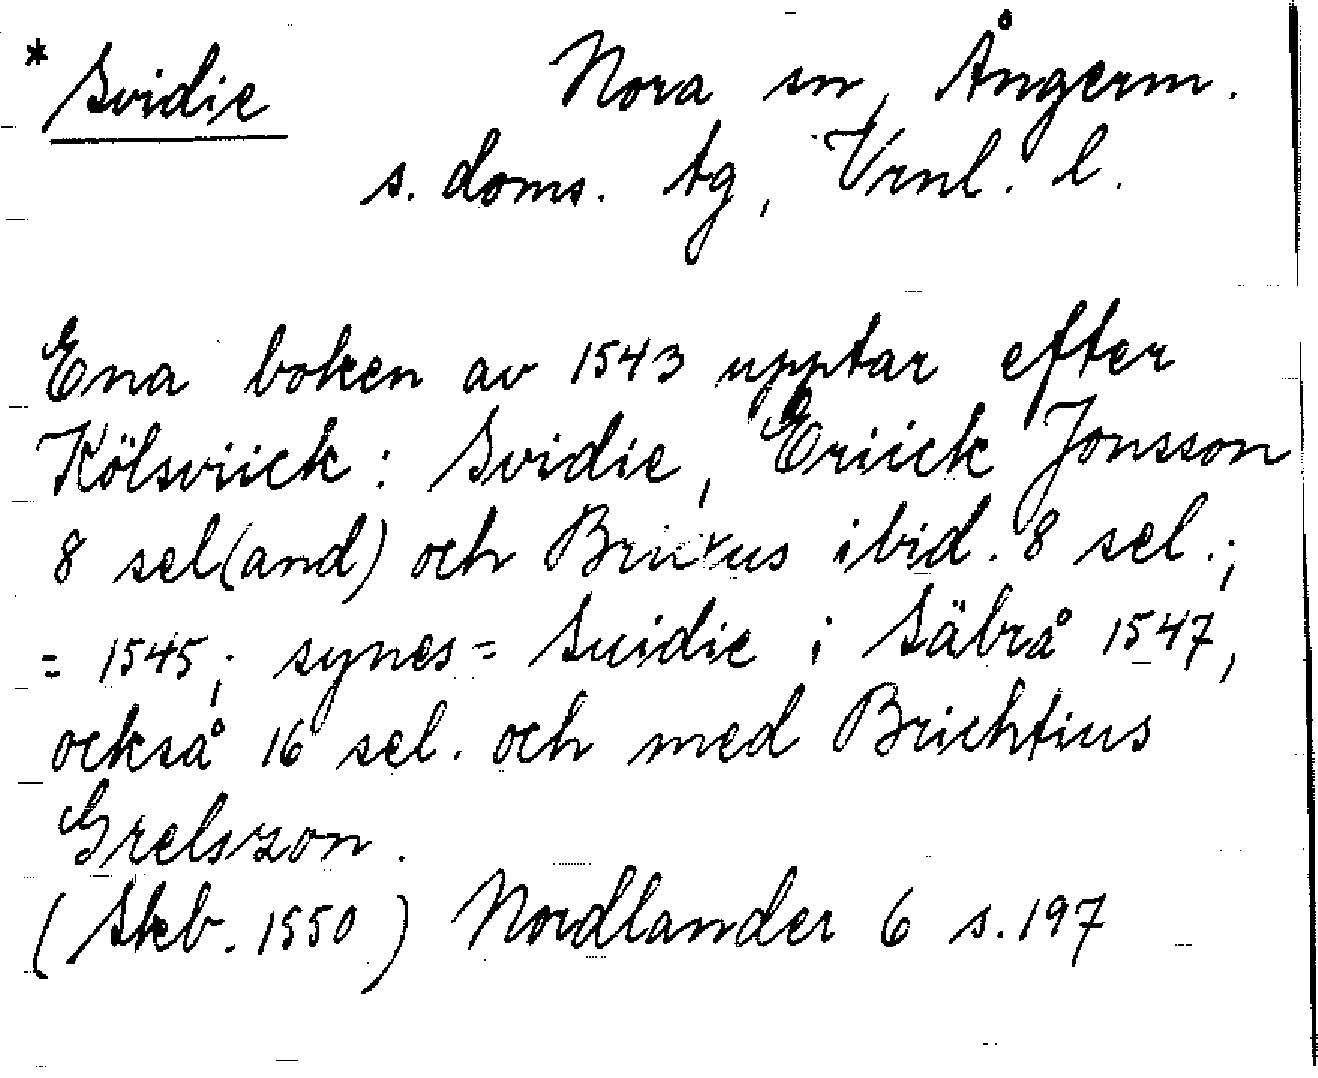 * Svidie Nora sn, Ångerm.
s. doms. tg, Vrnl. l.
Ena boken av 1543 upptar efter
Kölsviick: Svidie, Eriick Jonsson
8 sel(and) och Brictus ibid. 8 sel.;
= 1545; synes = Suidie i Säbrå 1547,
också 16 sel. och med Brichtius
Grelszon.
(Skb. 1550) Nordlander 6 s. 197